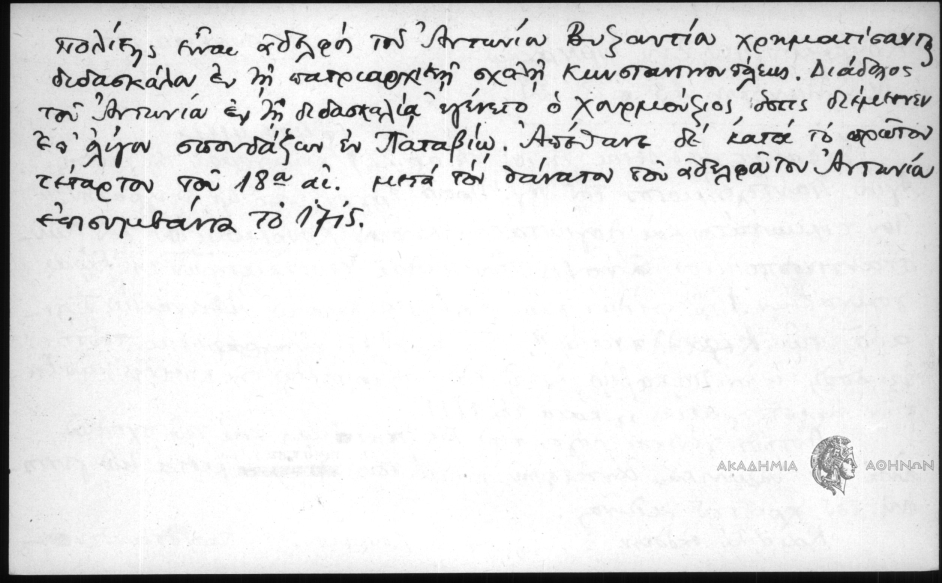 πολίτης εἶναι ἀδελφός τοῦ Ἀντωνίου Βυζαντίου χρηματίσαντος
διδασκάλου ἐν τῇ πατριαρχικῇ σχολῇ Κωνσταντινουπόλεως. Διάδοχος
τοῦ Ἀντωνίου ἐν τῇ διδασκαλίᾳ ἐγένετο ὁ Χουρμούζιος ὅστις διέμεινεν
ἐπ' ὀλίγον σπουδάζων ἐν Παταβίῳ. Ἀπέθανε δέ κατά τό πρῶτον
τέταρτον τοῦ 18ου αἰ. μετά τόν θάνατον τοῦ ἀδελφοῦ του Ἀντωνίου
ἐπισυμβάντα τό 1715.
ΑΚΑΔΗΜΙΑ ΑΘΗΝΩΝ